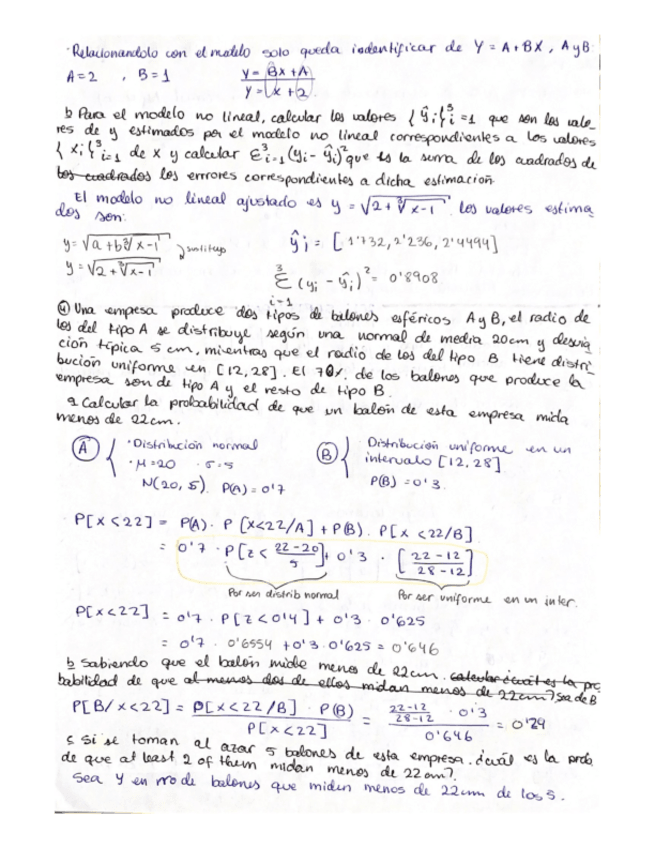 · Relacionandolo con el modelo solo queda indentificar de Y = A + BX , A y B.
A = 2 , B = 1 y = Bx + A
y = x + 2
b Para el modelo no lineal, calcular los valores { ŷi }³i=1 que son los valo_
res de y estimados por el modelo no lineal correspondientes a los valores
{ xi }³i=1 de x y calcular Σ³i=1 (yi - ŷi)² que es la suma de los cuadrados de
los cuadrados los errores correspondientes a dicha estimación
El modelo no lineal ajustado es y = √2 + ∛x - 1 los valores estima
dos son:
y = √a + b∛x - 1
y = √2 + ∛x - 1
ŷi = [1'732, 2'236, 2'4494]
3
Σ (yi - ŷi)² = 0'8908
i=1
④ Una empresa produce dos tipos de balones esféricos A y B, el radio de
los del tipo A se distribuye según una normal de media 20cm y desvia
ción típica 5 cm, mientras que el radio de los del tipo B tiene distri
bución uniforme en [12, 28]. El 70% de los balones que produce la
empresa son de tipo A y el resto de tipo B.
a Calcular la probabilidad de que un balón de esta empresa mida
menos de 22cm.
A { · Distribución normal
· μ = 20 · σ = 5
N(20, 5). P(A) = 0'7
B { Distribución uniforme en un
intervalo [12, 28].
P(B) = 0'3.
P[x < 22] = P(A) · P[x < 22/A] + P(B) · P[x < 22/B]
= 0'7 · P[z < 22 - 20 / 5] + 0'3 · [22 - 12 / 28 - 12]
Por ser distrib normal Por ser uniforme en un inter.
P[x < 22] = 0'7 · P[z < 0'4] + 0'3 · 0'625
= 0'7 · 0'6554 + 0'3 · 0'625 = 0'646
b Sabiendo que el balón mide menos de 22cm. calcular ¿cuál es la pro
babilidad de que al menos dos de ellos midan menos de 22cm? sea de B
P[B/x < 22] = P[x < 22/B] · P(B) / P[x < 22] = 22-12 / 28-12 · 0'3 / 0'646 = 0'29
c Si se toman al azar 5 balones de esta empresa. ¿cuál es la prob
de que at least 2 of them midan menos de 22 cm?.
Sea Y en nro de balones que miden menos de 22cm de los 5.